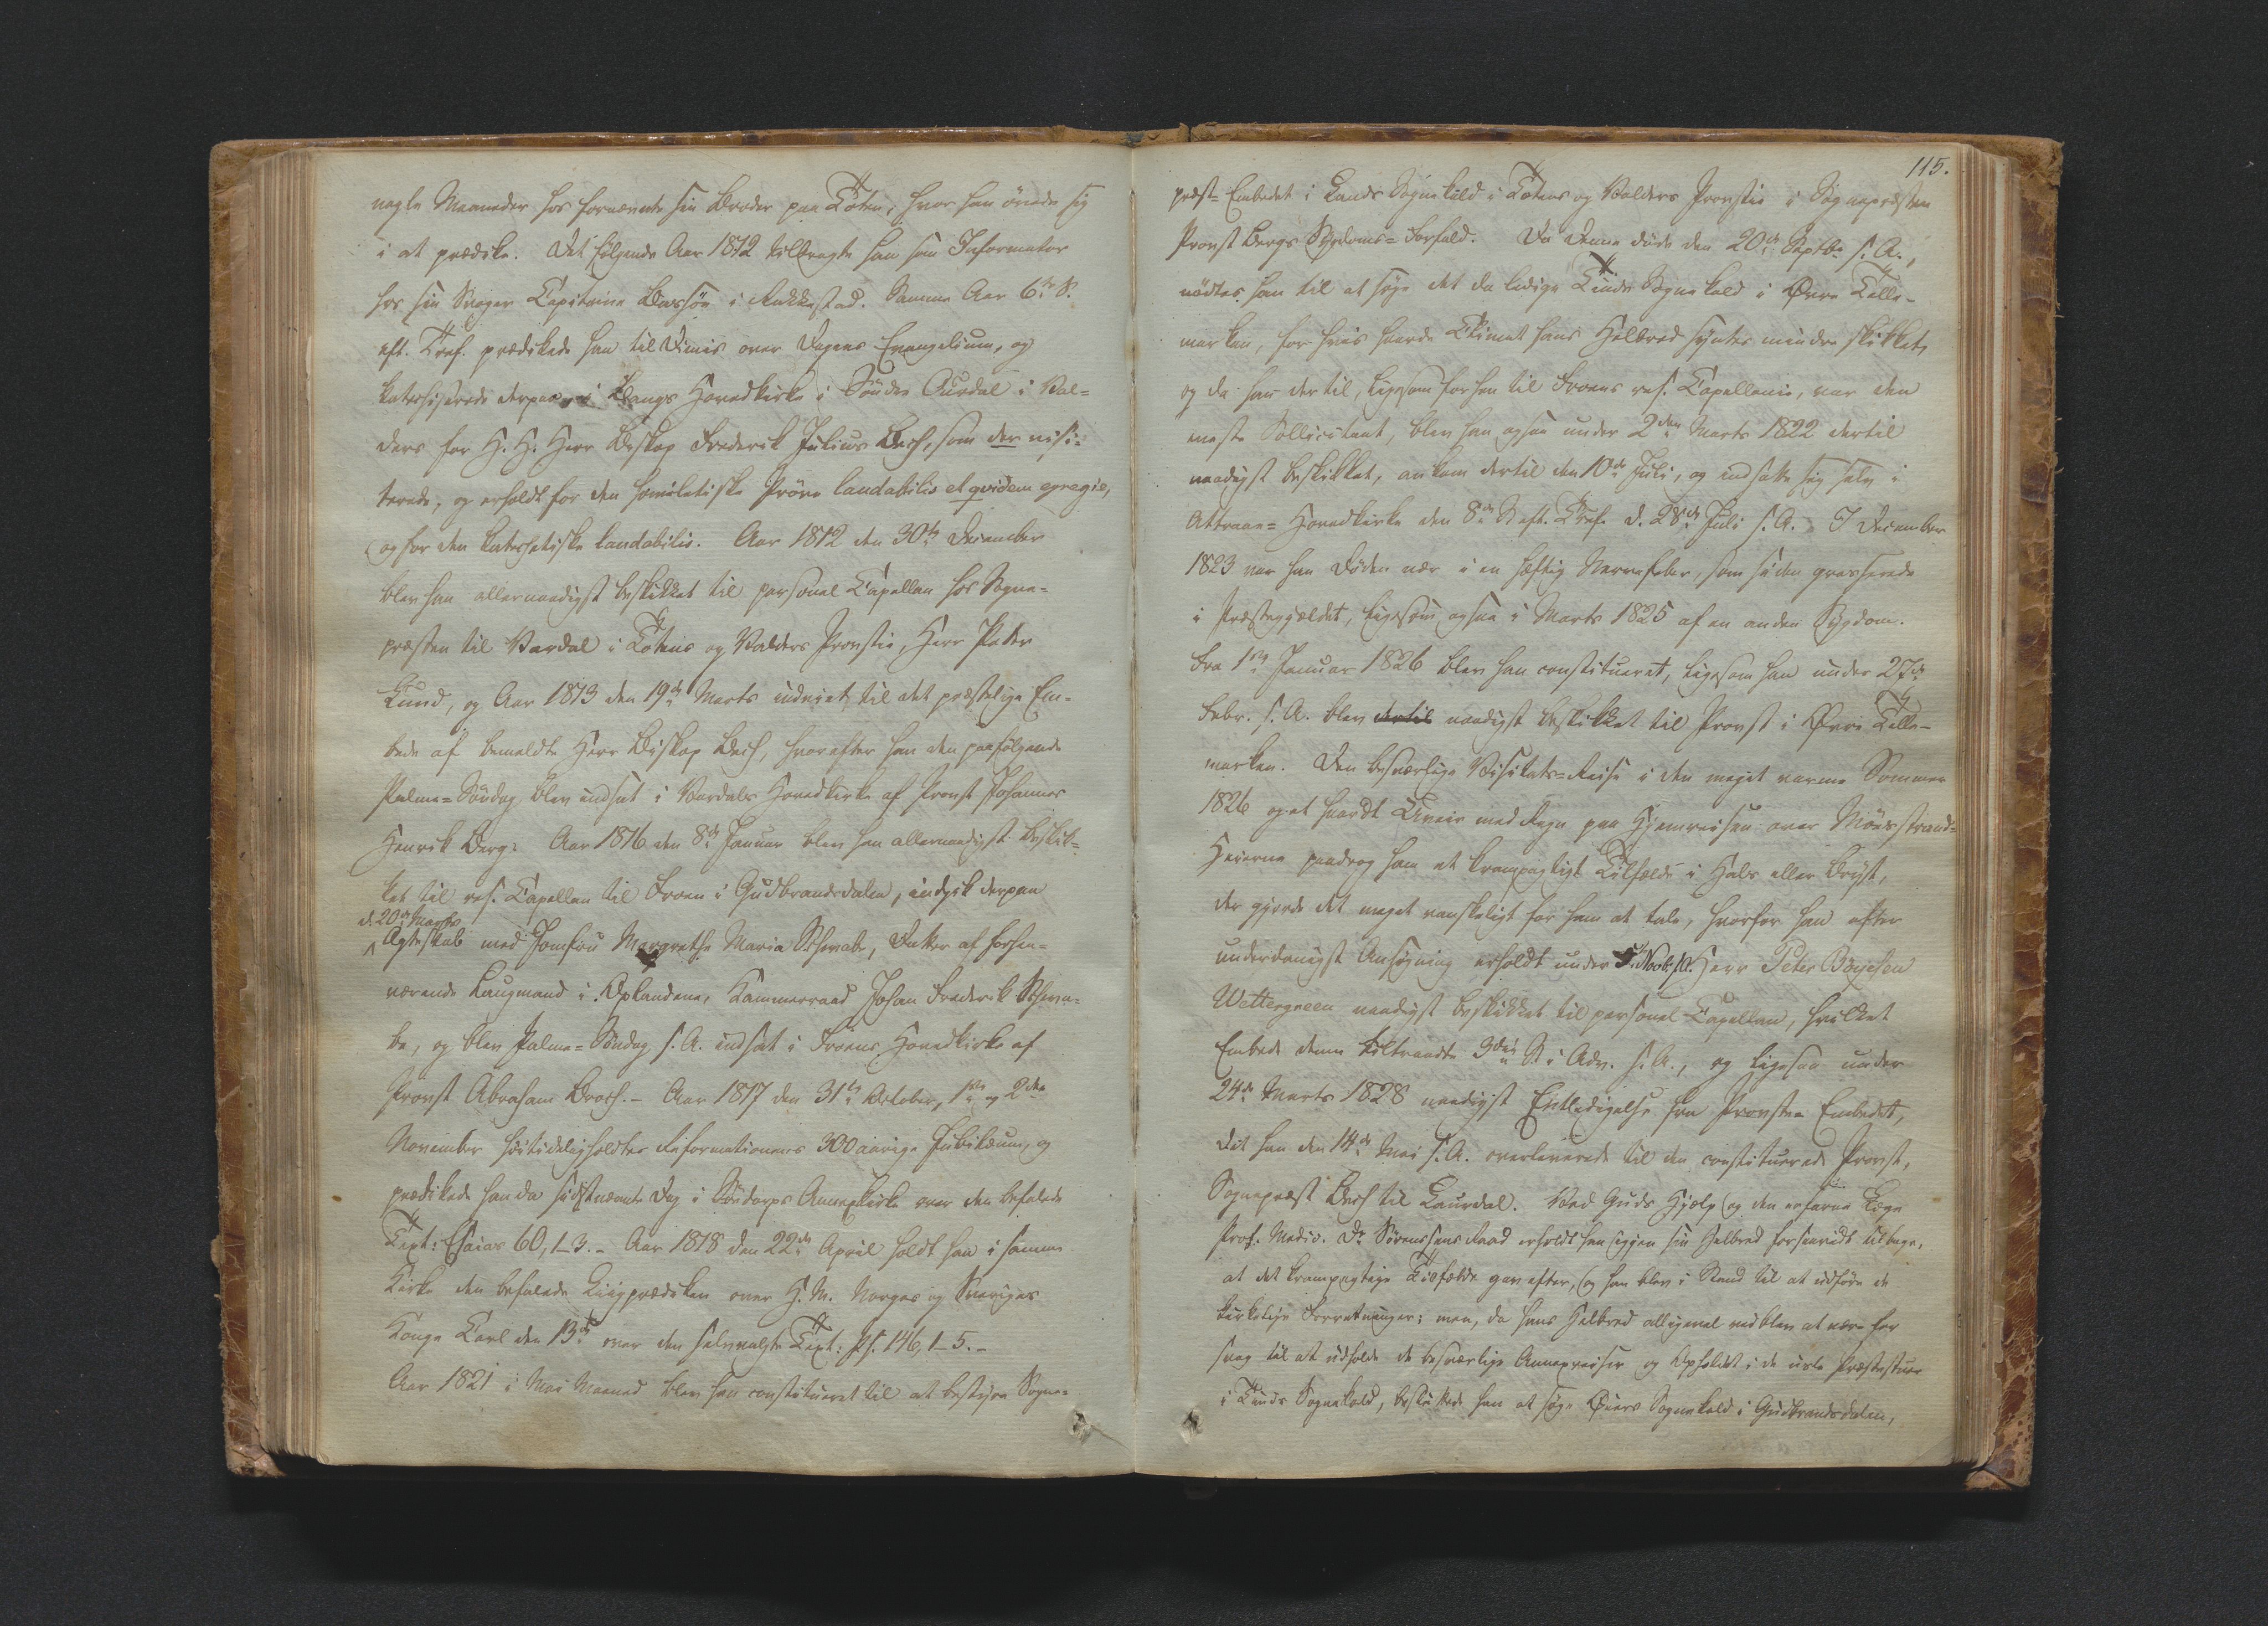 nogle Maaneder hos fornævnte sin Broder paa Toten, hvor han övede sig
i at prædike. Det følgende Aar 1812 tilbragte han som Informator
hos sin Svoger Capitaine Barsjön i Rakkestad. Samme Aar 6te S.
eft. Tref. prædikede han til Dimis over Dagens Evangelium, og
katechiserede derpaa i Bangs Hovedkirke i Söndre Aurdal i Val=
ders for H. H. Herr Biskop Frederik Julius Bech, som der visi=
terede, og erholdt for den homiletiske Pröve laudabilis et qvidem egregie,
og for den katechetiske laudabilis. Aar 1812 den 30te December
blev han allernaadigst beskikket til personel Capellan hos Sogne=
præsten til Vardal i Totens og Valders Provstie, Herr Peder
Lund, og Aar 1813 den 19de Marts indviet til det præstelige Em=
bede af bemeldte Herr Biskop Bech, hvorefter han den paafølgende
Palme=Söndag blev indsat i Vardals Hovedkirke af Provst Johannes
Henrik Berg. Aar 1816 den 8de Januar blev han allernaadigst beskik=
ket til res. Capellan til Froen i Gudbrandsdalen, indgik derpaa
d. 20de Marts
Ægteskab med Jomfru Margrethe Maria Schwabe, Datter af forhen=
værende Laugmand i Oplandene, Kammerraad Johan Frederik Schwa=
be, og blev Palme=Söndag s. A. indsat i Froens Hovedkirke af
Provst Abraham Broch. – Aar 1817 den 31te October, 1ste og 2den
November höitideligholdtes Reformationens 300aarige Jubilæum, og
prædikede han da sidstnævnte Dag i Södorps Annexkirke over den befalede
Text: Esaias 60, 1–3. – Aar 1818 den 22de April holdt han i samme
Kirke den befalede Liigprædiken over H. M. Norges og Sverriges
Konge Carl den 13de over den selvvalgte Text: Ps. 146, 1–5. –
Aar 1821 i Mai Maaned blev han constitueret til at bestyre Sogne=
115.
præst=Embedet i Lands Sognekald i Totens og Valders Provstie i Sognepræsten
Provst Bergs Sygdoms=Forfald. Da Denne døde den 20de Septbr. s. A.,
nödtes han til at søge det da ledige Tinds Sognekald i Øvre Telle=
marken, for hvis haarde Climat hans Helbred syntes mindre skikket,
og da han dertil, ligesom forhen til Froens res. Capellanie, var den
eneste Sollicitant, blev han ogsaa under 2den Marts 1822 dertil
naadigst beskikket, ankom dertil den 10de Juli, og indsatte sig selv i
Attraae=Hovedkirke den 8de S. eft. Tref. d. 28de Juli s. A. – I December
1823 var han Døden nær i en heftig Nervefeber, som siden grasserede
i Præstegjældet, ligesom ogsaa i Marts 1825 af en anden Sygdom.
Fra 1ste Januar 1826 blev han constitueret, ligesom han under 27de
Febr. s. A. blev dertil naadigst beskikket til Provst i Øvre Telle=
marken. Den besværlige Visitats=Reise i den meget varme Sommer
1826 og et haardt Uveir med Regn paa Hjemreisen over Mösstrand=
Heierne paadrog ham et krampagtigt Tilfælde i Hals eller Bryst,
der gjorde det meget vanskeligt for ham at tale, hvorfor han efter
underdanigst Ansøgning erholdt under Novbr. s. A. Herr Peter Böyesen
Wettergreen naadigst beskikket til personel Capellan, hvilket
Embede denne tiltraadte 3die S. i Adv. s. A., og ligesaa under
24de Marts 1828 naadigst Entledigelse fra Provste=Embedet,
dit han den 14de Mai s. A. overleverede til den constituerede Provst,
Sognepræst Bech til Laurdal. Ved Guds Hjælp og den erfarne Læge
Prof. Medic. Dr. Sörenssens Raad erholdt han igjen sin Helbred forsaavidt tilbage,
at det krampagtige Tilfælde gav efter, og han blev i Stand til at udføre de
kirkelige Forretninger; men, da hans Helbred alligevel vedblev at være for
svag til at udholde de besværlige Annexreiser og Opholdet i de usle Præstestuer
i Tinds Sognekald, besluttede han at søge Øiers Sognekald i Gudbrandsdalen,